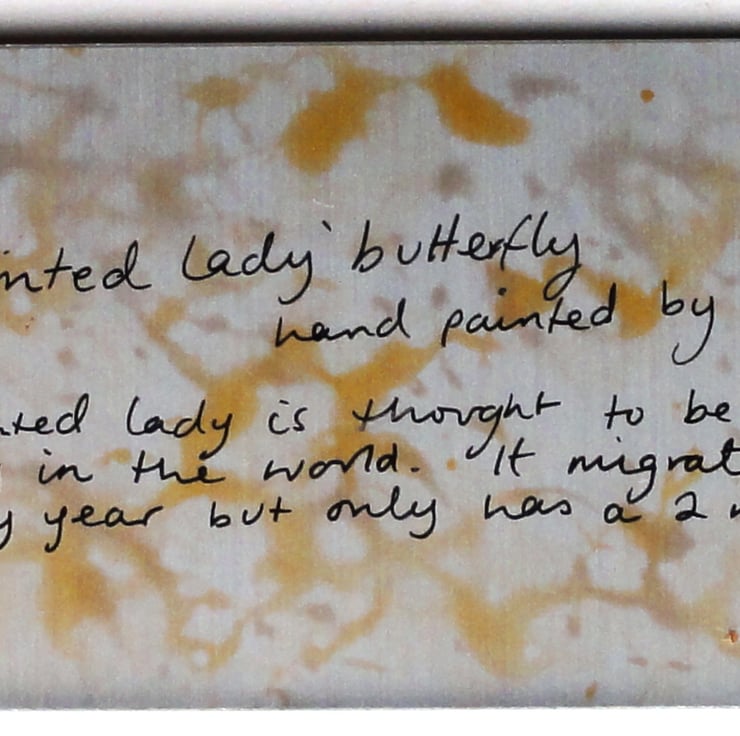 inted lady' butterfly
hand painted by
nted lady is thought to be
in the world. It migrat
y year but only has a 2